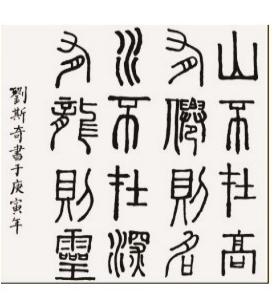 山不在高
有僊則名
水不在深
有龍則靈
劉斯奇書于庚寅年